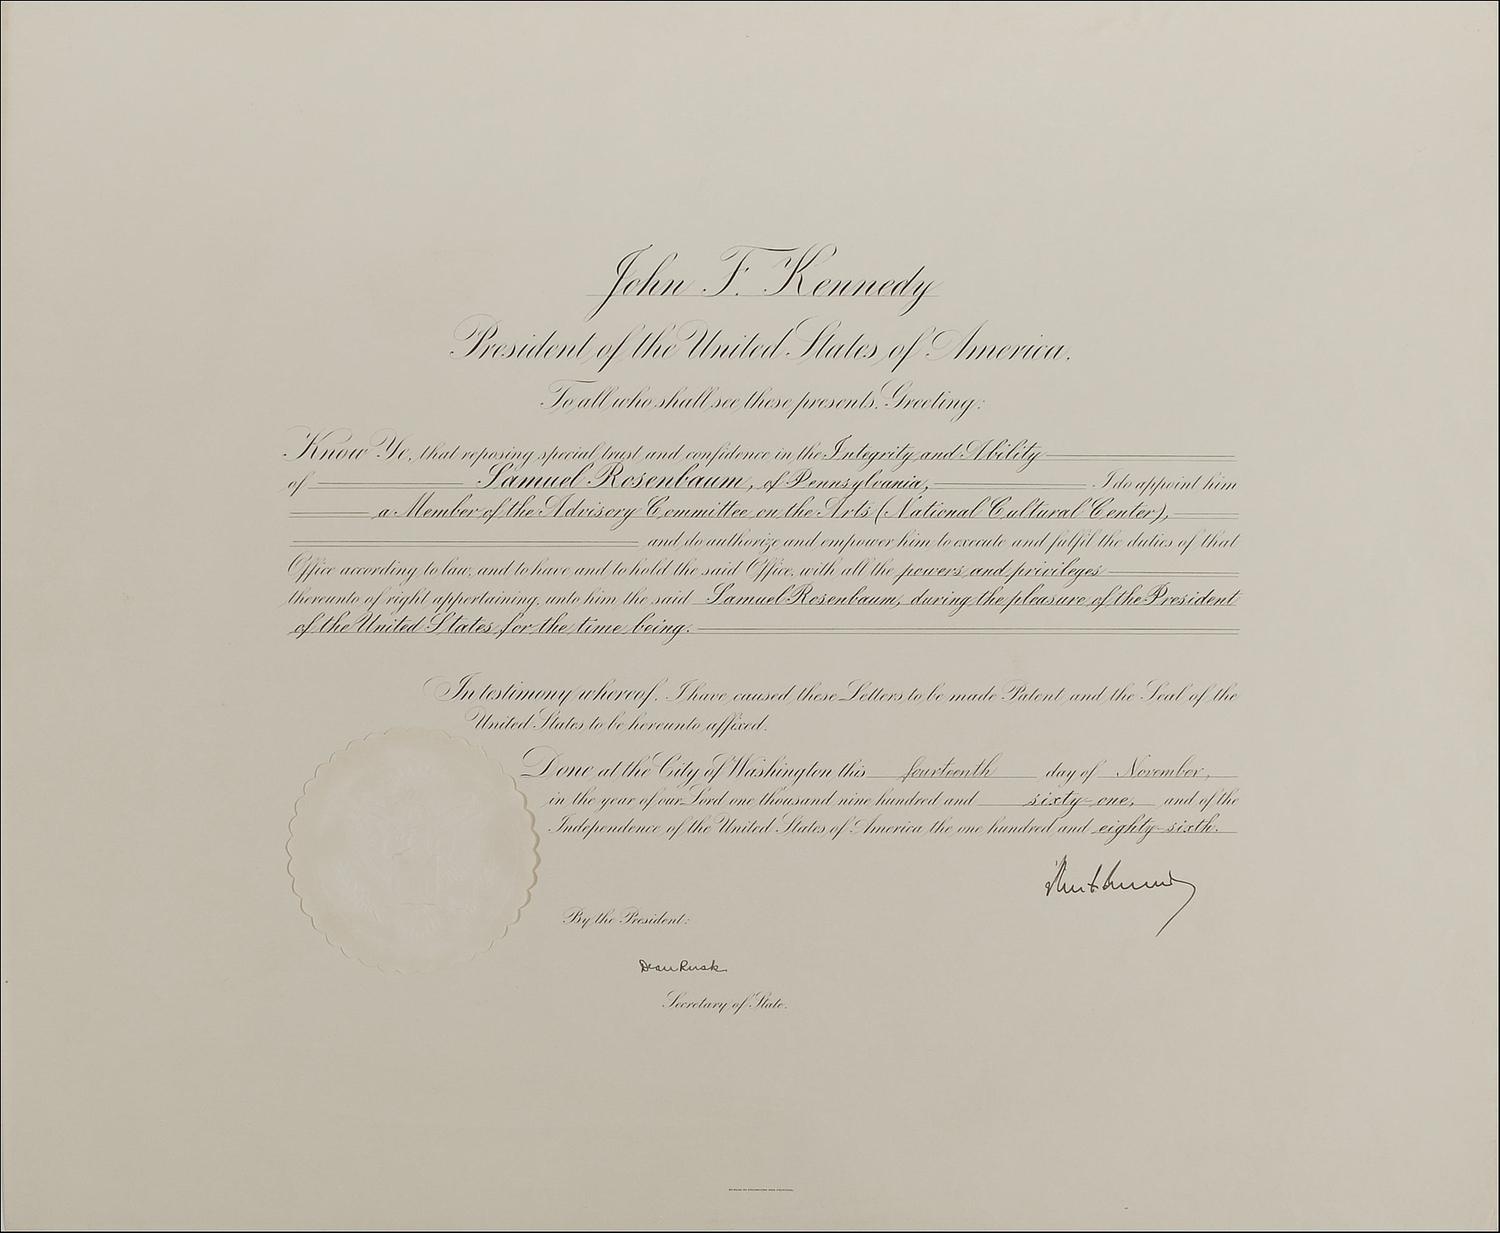 John F. Kennedy
President of the United States of America.
To all who shall see these presents, Greeting:
Know Ye, that reposing special trust and confidence in the Integrity and Ability
of Samuel Rosenbaum, of Pennsylvania, I do appoint him
a Member of the Advisory Committee on the Arts (National Cultural Center),
and do authorize and empower him to execute and fulfil the duties of that
Office according to law, and to have and to hold the said Office, with all the powers and privileges
thereunto of right appertaining, unto him the said Samuel Rosenbaum, during the pleasure of the President
of the United States for the time being.
In testimony whereof, I have caused these Letters to be made Patent and the Seal of the
United States to be hereunto affixed.
Done at the City of Washington this fourteenth day of November,
in the year of our Lord one thousand nine hundred and sixty-one, and of the
Independence of the United States of America the one hundred and eighty-sixth.
By the President:
Dean Rusk
Secretary of State.